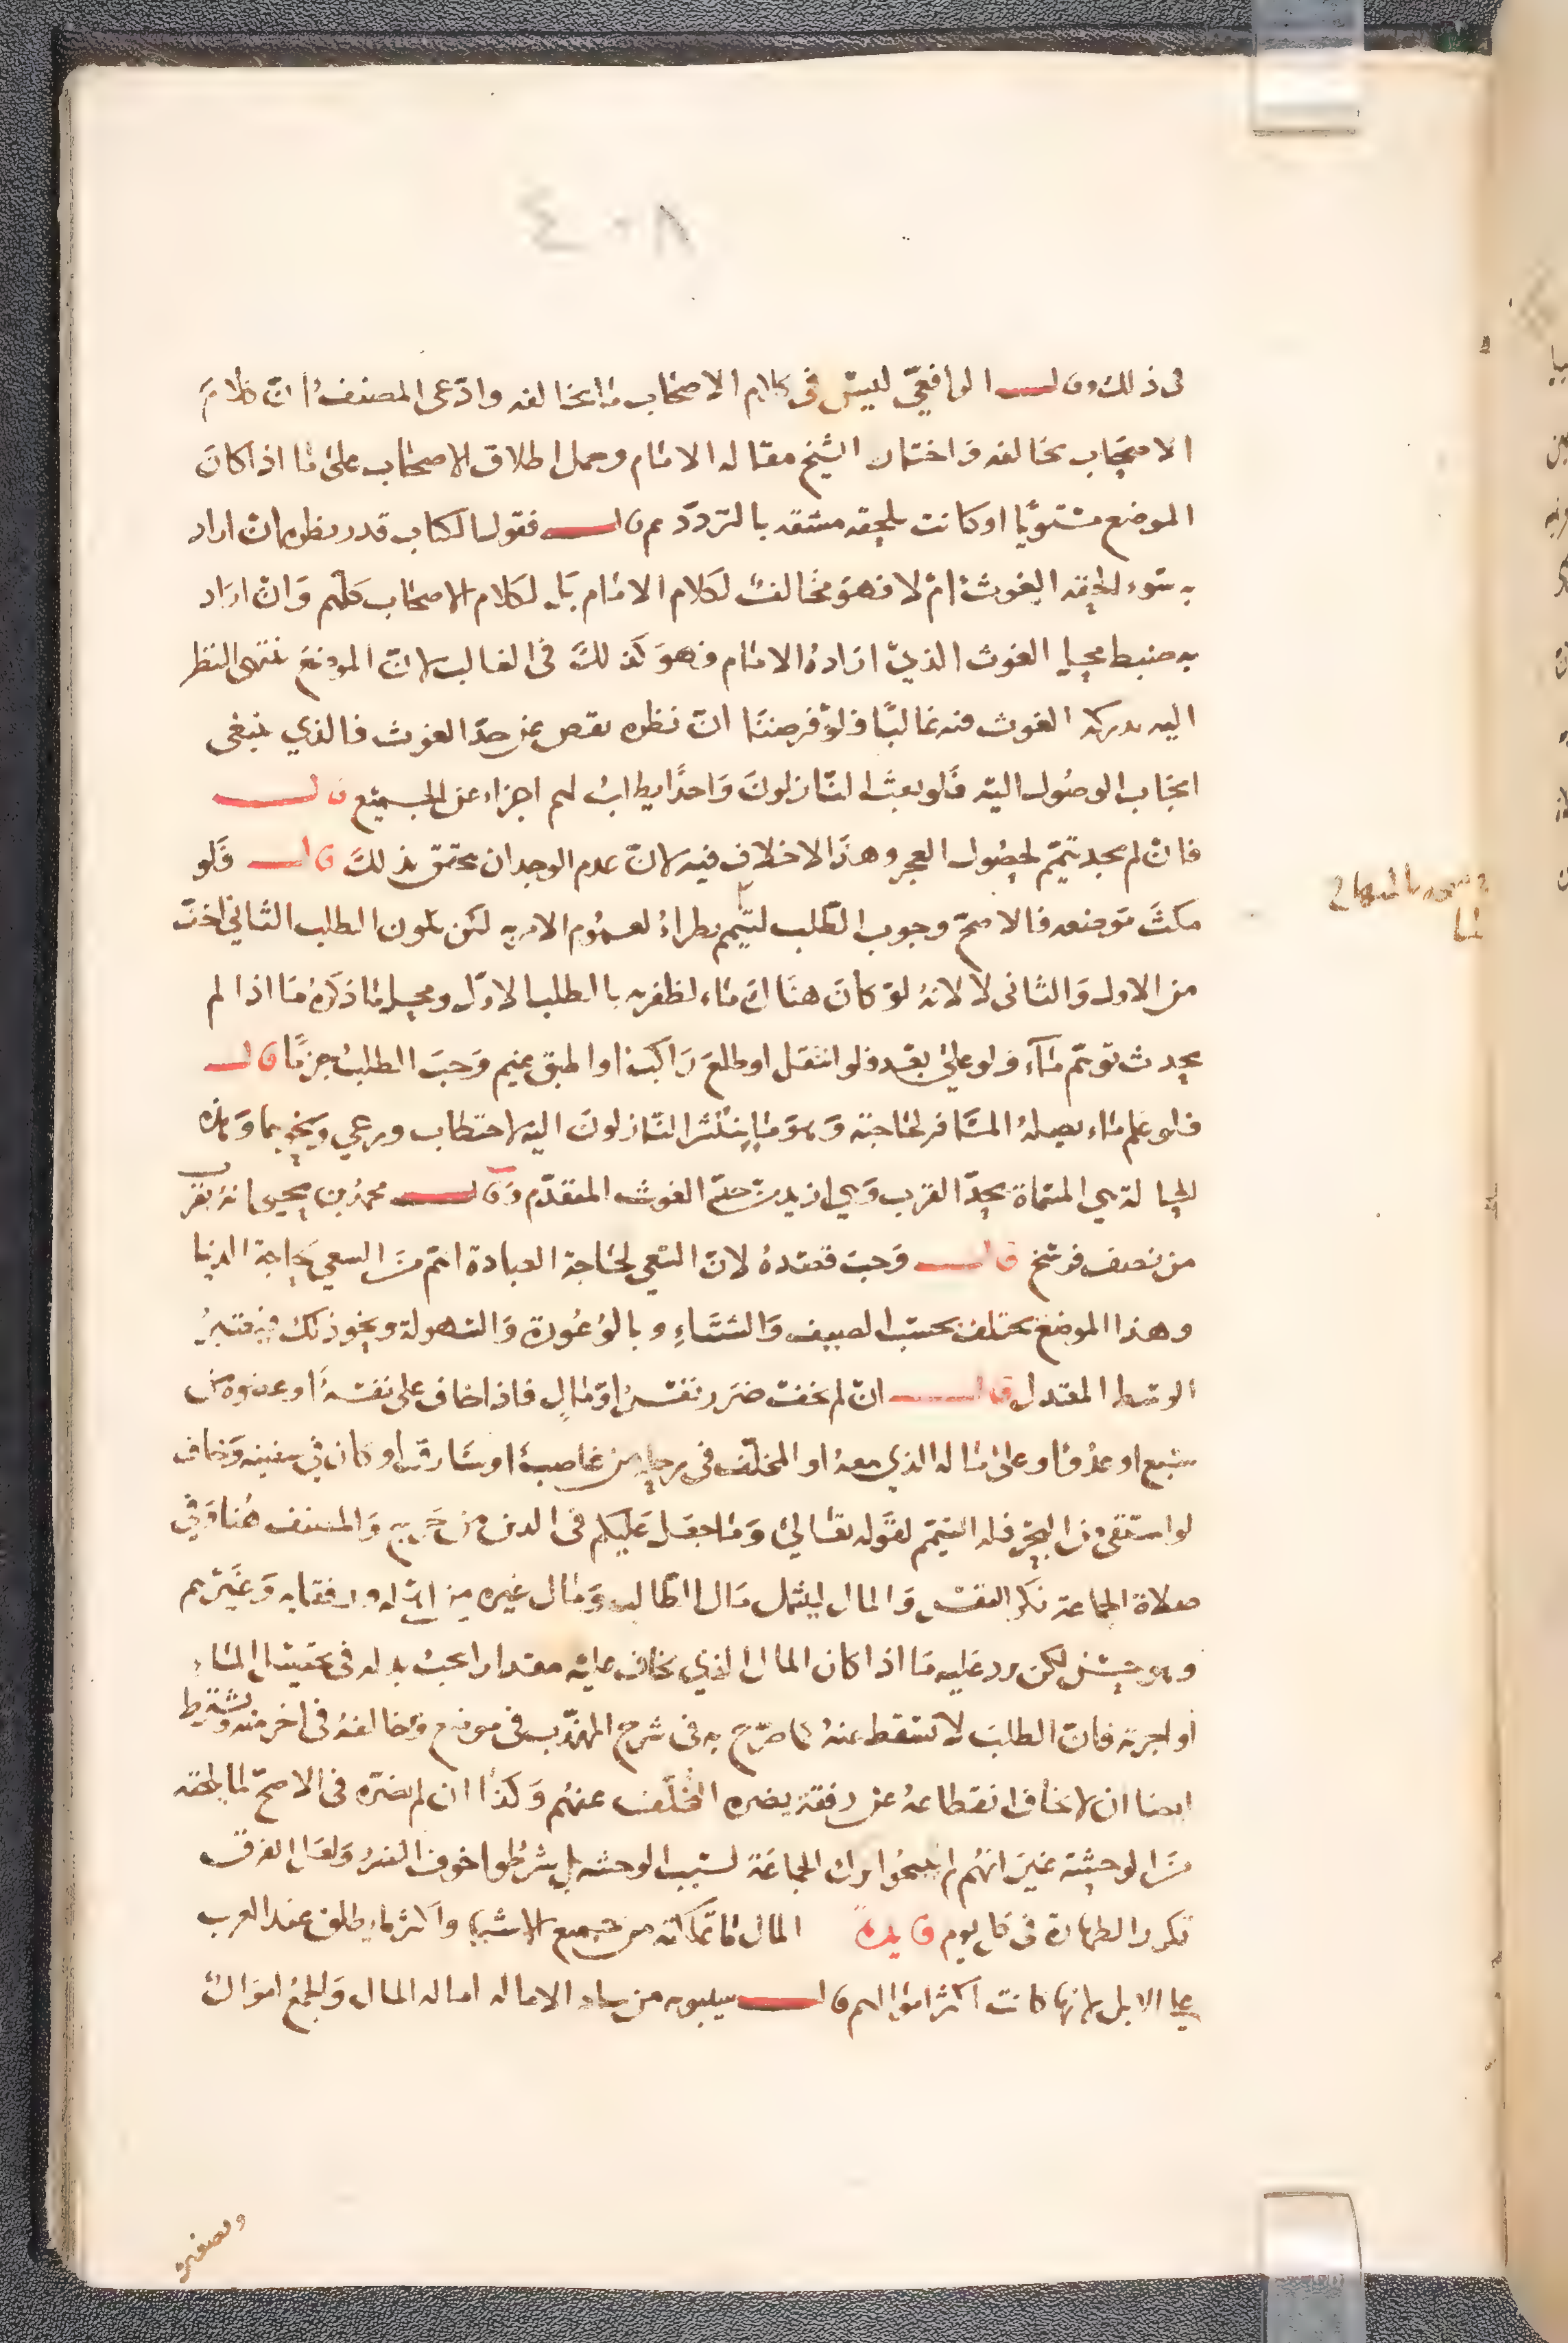 ٤٠٨
فى ذلك وقال الرافعيّ ليسَ فى كلام الاصحاب ما يخالفه وادّعى المصنفُ انّ كلامَ
الاصحاب يخالفه واختار الشيخ مقاله الامام وحمل اطلاق الاصحاب على ما اذا كان
الموضع مستويًا او كانت تلحقه مشقه بالتردّد م قال فقول الكتاب قدر نظره ان اراد
به سَوء لحقه الغوث امْ لا فهوَ مخالفٌ لكلام الامام بَل لكلام الاصحاب كلّهم وَان ارَاد
به ضبط محل الغوث الذيْ ارَادهُ الامام فهوَ كذلكَ فى الغالب لانّ الموضعَ ينتهى النظر
اليه يدركه الغوث فيه غالبًا فلوْ فرضنَا انّ نظره نقص عن حدّ الغوث فالذي ينبغى
ايجَاب الوصُول اليه فَلو بعثَ النّازلونَ وَاحدًا يطلبُ لهم اجزاء عن الجميْع قال
فانْ لم يجد تيمّم لحصُول العجز وهذَا لا خلاف فيه لانّ عدم الوجدان تحقق بذلكَ قال فَلو
مكثَ موضعه فالاصحّ وجوب الطّلب لتيمّم يطراءُ لعمُوم الامر به لكن يكون الطلب الثّاني اخفّ
من الاول وَالثانى لا لانهُ لوْ كانَ هنَاك مَاء لظفر به بالطلب الاوّل ومحل ما ذكرَهُ مَا اذا لم
يحدث توهّم مَآء ولو على بعْد فلو انتقل او طلعَ رَاكبٌ او اطبق غيم وَجبَ الطلبُ جزمًا قال
فلو علم ماء يصلهُ المسَافر لحاجته وَهوَ مَا ينتشر النّازلونَ اليه لاحتطاب ورعي ونحوهما وَهذه
الحالة هي المسَمّاة بحدّ القرب وَهي ازيد من حدّ الغوث المتقدّم وقال محمدُ بن يحيى انهُ يقرُب
من نصف فرسَخ قال وَجبَ قصْدهُ لانّ السّعي لحاجة العبادة اهمّ منَ السعي لحاجة الدنيا
وهذا الموضع يختلف بحسَب الصيف وَالشتَاءِ وبالوُعُورة وَالسّهولة ونحو ذلك فيعتبرُ
الوسَط المعتدل قال انْ لم يخفْ ضرَر نفسْ اوْ مَالٍ فاذا خاف على نفسَهُ او عضوه من
سَبع او عدُو او على ماله الذي معهُ او المخلّف فى رحله من غاصبٍ او سَارقٍ او كان فى سفينة وَخاف
لو استقى من البحْر فله التيمّم لقوله تعالى وَمَا جعَل عَليكم فى الدين من حَرجٍ وَالمصنف هُنا وَفي
صلاة الجماعة نكر النفسْ وَالمال ليشمل مَال الطّالب وَمَال غيره من اهله ورفقايه وَغيْرهم
وهو حسَن لكن يرد عَليه مَا اذا كان المال الذي يخاف عليْه مقدارا يجبُ بذله فى تحصيل الماء
او اجرته فانّ الطلبَ لا يسْقط عنهُ كما صرّح به فى شرح المهذّب فى موضع وخالفهُ فى اخر منه ويشترط
ايضا ان لا يخاف انقطاعهُ عن رفقة يضره التخلّف عنهُم وَكذَا ان لم يضرّه فى الاصحّ لما يلحقه
منَ الوحشة غيرَ انهُم لم يبيحُوا ترك الجماعَة لسَبب الوحشه بل شرطُوا خوف الضرُ وَلعَل الفرق
تكرر الطهارة فى كل يوم فايدة المال ما تملكته من جميع الاشيا وَاكثر ما يطلق عند العرب
على الابل لانها كانت اكثر اموَالهم قال سيبويه من الاماله اماله المال وَالجمْع اموَالٌ
وتصغيره